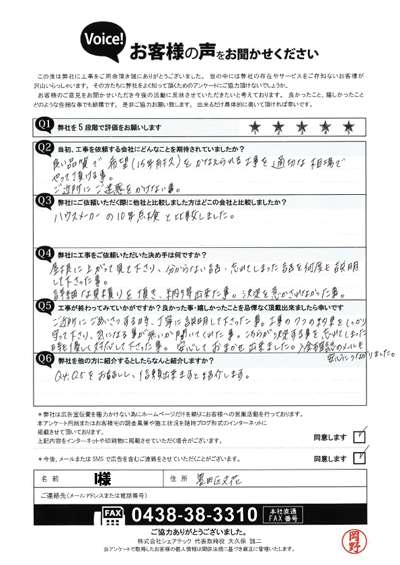 Voice!
お客様の声をお聞かせください
この度は弊社に工事をご用命頂き誠にありがとうございました。世の中には弊社の存在やサービスをご存知ないお客様が
沢山いらっしゃいます。その方たちに弊社をよく知って頂くためのアンケートにご協力頂けないでしょうか。
お客様のご意見をお聞かせいただき今後の活動に反映させていただきたいと考えております。良かったこと、嬉しかったこと
どのような些細な事でも結構です。是非ご協力お願い致します。出来るだけ具体的に書いて頂ければ幸いです。
Q1 弊社を5段階で評価をお願いします ★ ★ ★ ★ ★
Q2 当初、工事を依頼する会社にどんなことを期待されていましたか?
良い品質で希望(15年耐久)をかなえられる工事を適切な相場で
やって頂ける事。
ご近所にご迷惑をかけない事。
Q3 弊社にご依頼いただく際に他社と比較しました方はどこの会社と比較しましたか?
ハウスメーカーの10年点検と比較しました。
Q4 弊社に工事をご依頼いただいた決め手は何ですか?
屋根に上がって見て下さり、分からない話、忘れてしまった話を何度も説明
して下さった事。
詳細な見積りを頂き、納得出来た事。決定を急かされなかった事。
Q5 工事が終わってみていかがですか?良かった事・嬉しかったことを忌憚なく頂戴出来ましたら幸いです
ご近所にごあいさつする時、丁寧に説明して下さった事。工事の1つ1つ約束をしっかり
守って下さり、気になる事がしっかり聞いてくれた事。こちらが決定する事を忘れてしまった
時も優しく対応して下さった事。安心しておまかせ出来ました。
Q6 弊社を他の方に紹介するとしたらなんと紹介しますか?
Q4, Q5をお話しし、信頼出来ますと紹介します。
*弊社は広告宣伝費を極力かけない為にホームページだけを頼りにお客様への営業活動を行っております。
本アンケート用紙またはお客様宅の調査風景や施工状況を随時ブログ形式のインターネットに
掲載させて頂いております。
上記内容をインターネットや印刷物に掲載させていただく場合がございます。 同意します ☑
*今後、メールまたはSMSで広告を含むご連絡をさせていただくことがございます。 同意します ☑
名前 I様 住所 墨田区文花
ご連絡先(メールアドレスまたは電話番号)
FAX 0438-38-3310 本社直通 FAX番号
ご協力ありがとうございました。
株式会社シェアテック 代表取締役 大久保 誠二
当アンケートで取得したお客様の個人情報は関係法規に基づき厳正に管理いたします。
岡野